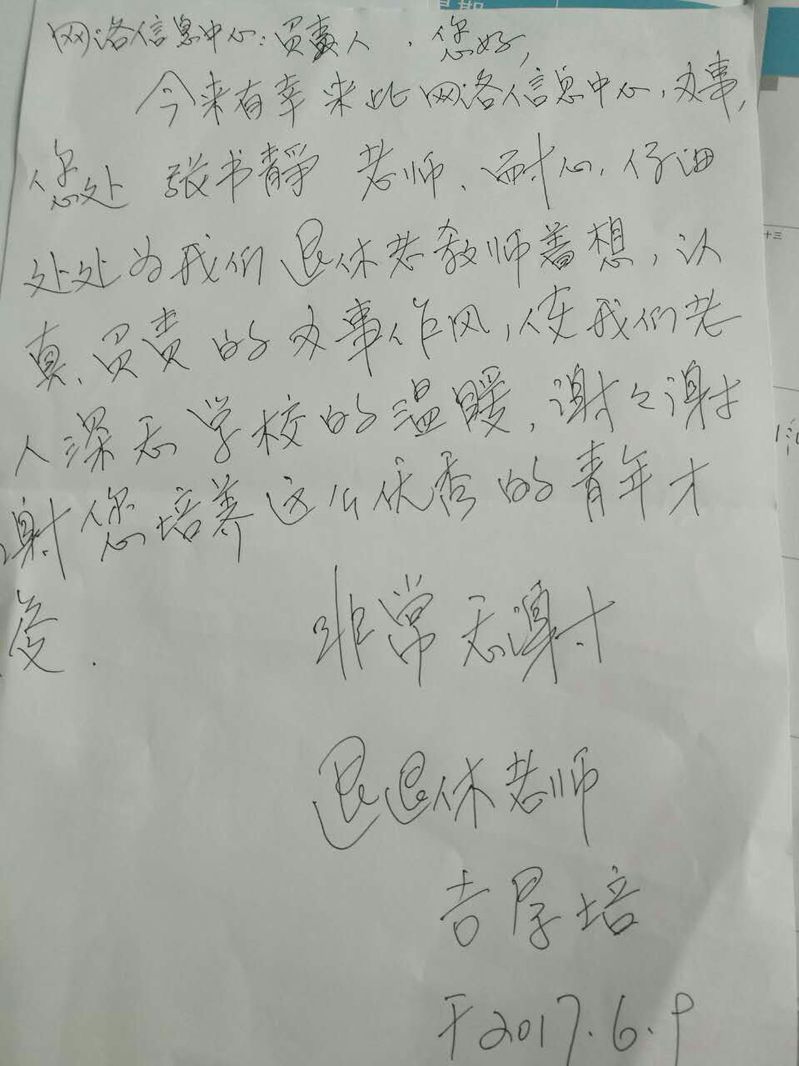 星期
网洛信息中心:负责人，您好，
今来有幸来此网洛信息中心，办事，
您处 张书静 老师、耐心，仔细
处处为我们退休老教师着想，认
真、负责的办事作风，使我们老
人深感学校的温暖，谢々谢
谢您培养这么优秀的青年才
俊.
非常感谢
退退休老师
吉 培
于2017.6.9
十三